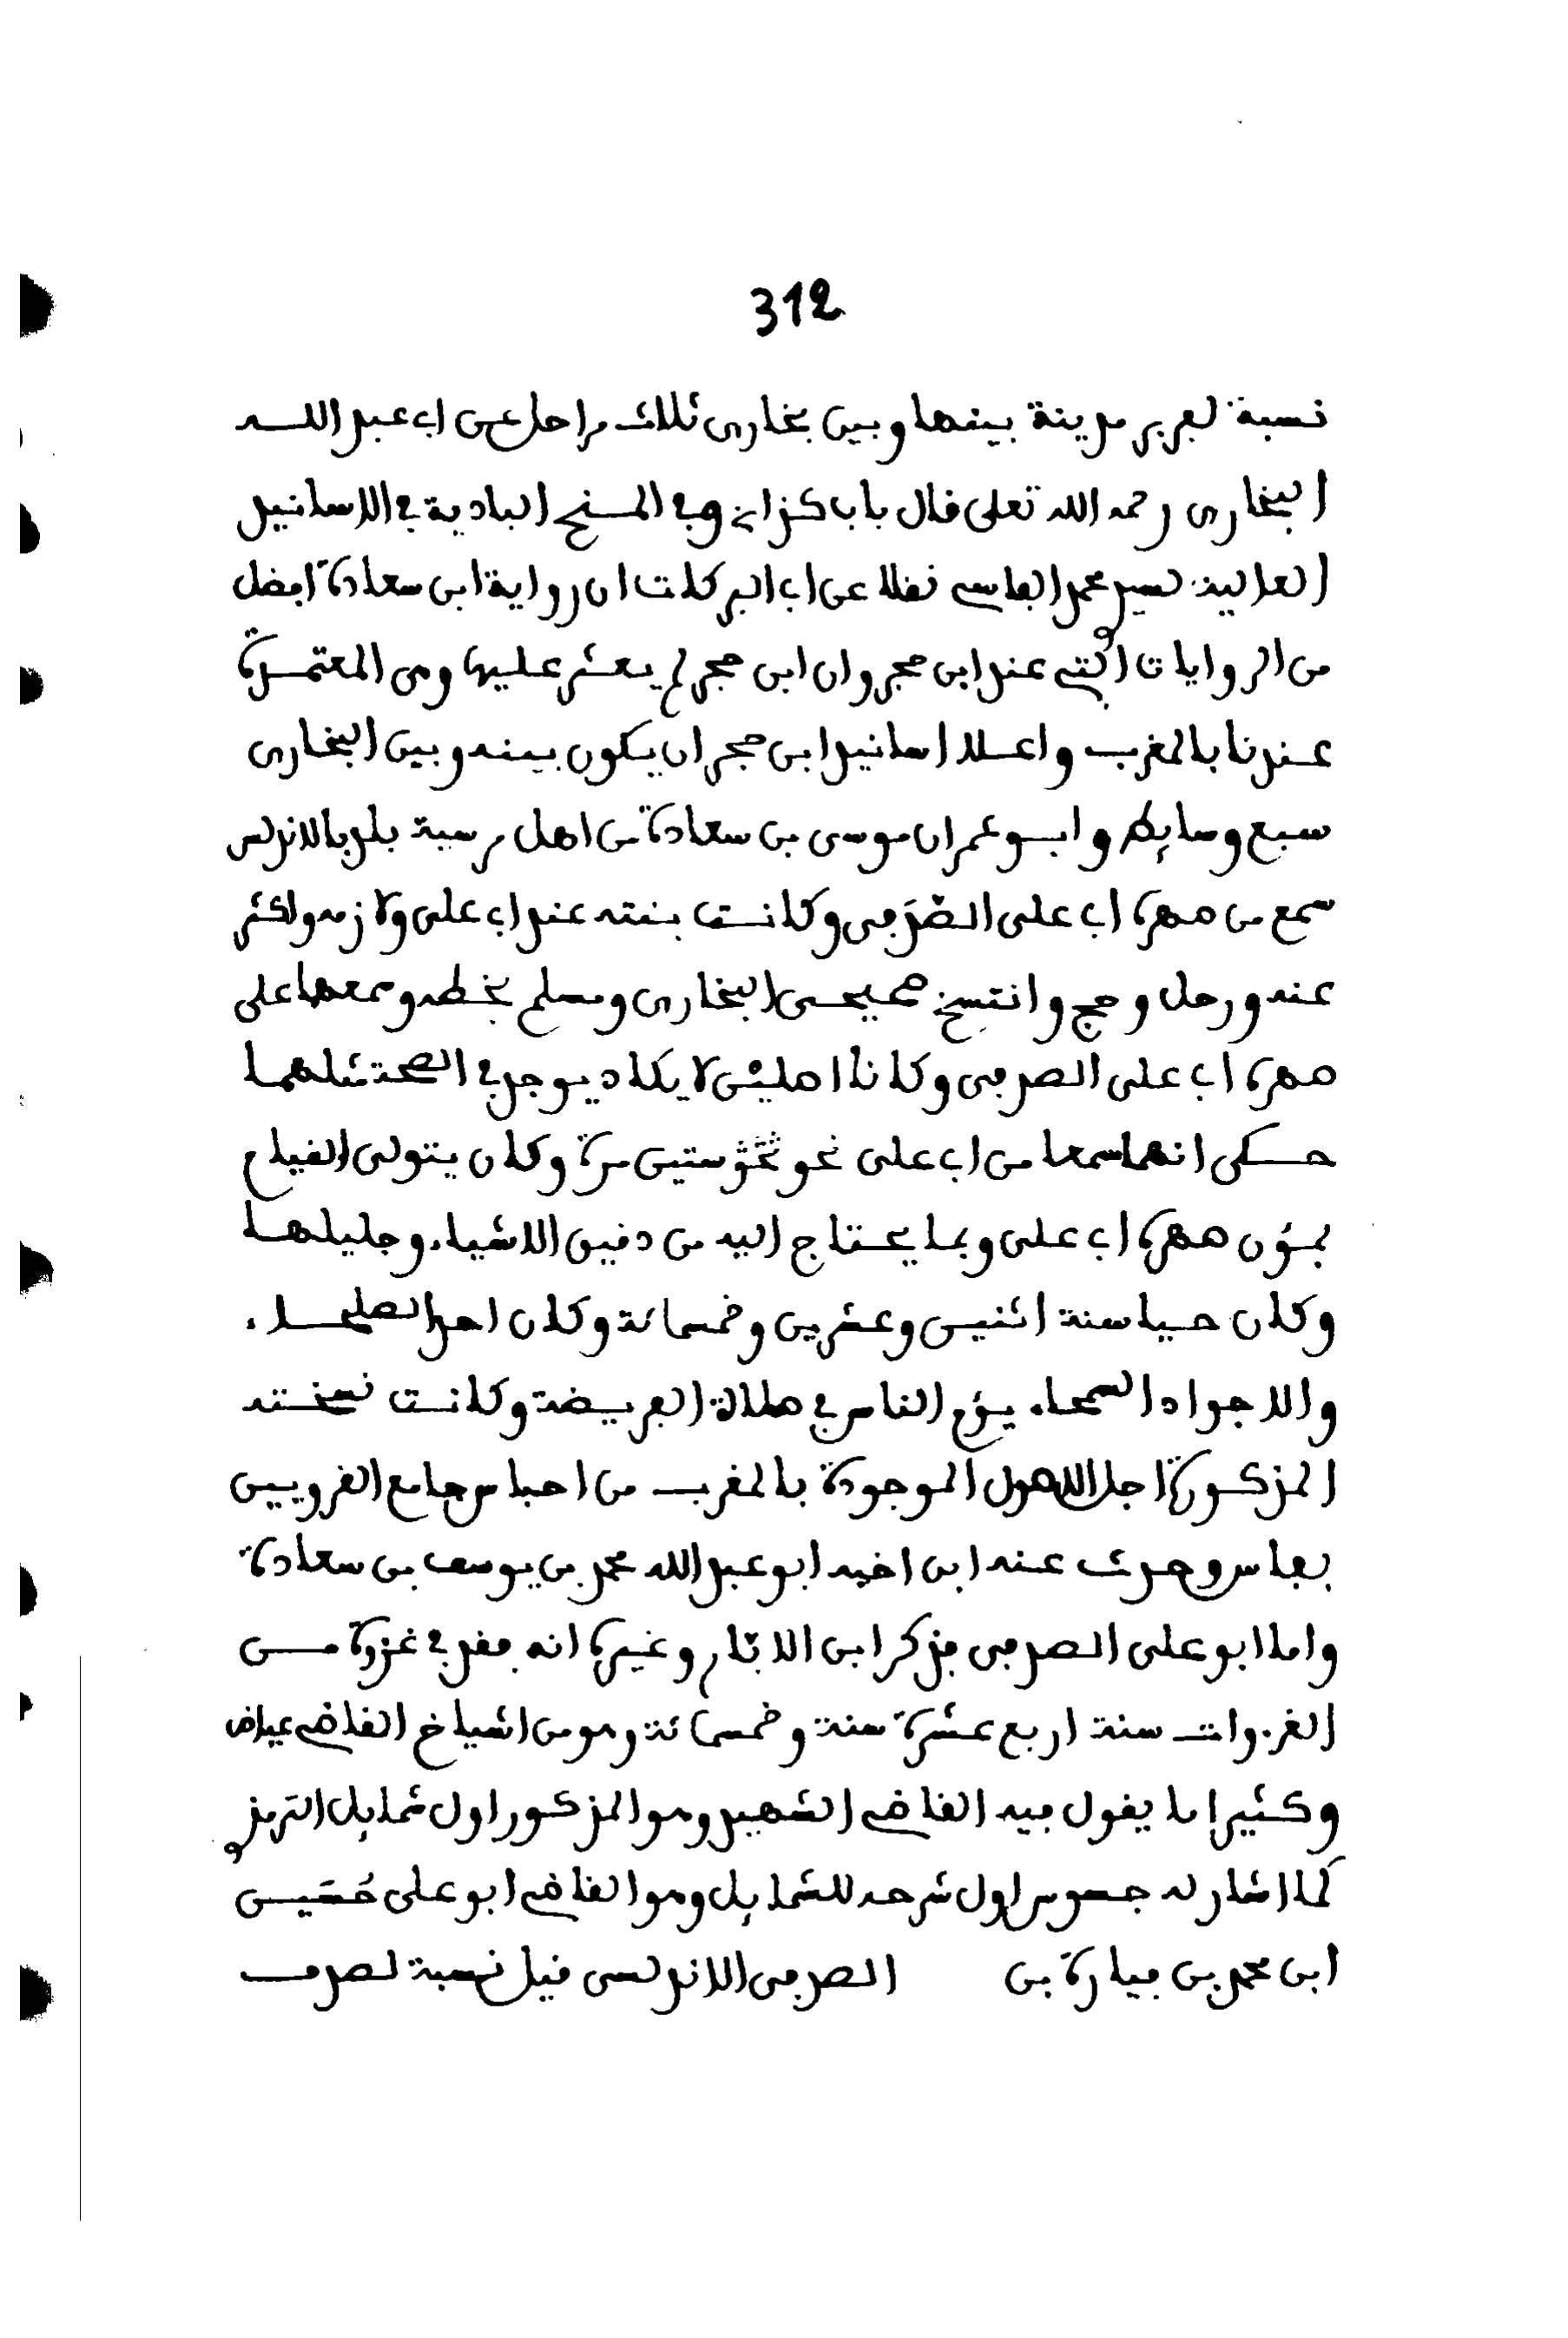 312
نسبة لفربر مدينة بينها وبين بخارى ثلاث مراحل عن ابي عبد اللــه
البخارى رحمه الله تعلى قال باب كذا الخ وفي المنح البادية في الاسانيد
العالية لسيد محمد الفاسي نقلا عن ابي البركات ان رواية ابن سعادة افضل
من الروايات التي عند ابن حجر وان ابن حجر لم يعثر عليها وهى المعتمدة
عندنا بالمغرب واعلا اسانيد ابن حجر ان يكون بينه وبين البخارى
سبع وسايط وابو عمران موسى بن سعادة من اهل مرسية بلد بالاندلس
سمع من صهره ابي على الصدفى وكانت بنته عند ابي على ولازمه واكثر
عنه ورحل وحج وانتسخ صحيحى البخارى ومسلم بخطه وسمعها على
صهره ابي على الصدفى وكانا اصلين لا يكاد يوجد في الصحة مثلهما
حكى انهما سمعا من ابي على نحو ستين مرة وكان يتولى القيام
بمؤن صهره ابي على وبما يحتاج اليه من دقيق الاشياء وجليلها
وكان حيا سنة اثنين وعشرين وخمسمائة وكان احد الصلحاء
والاجواد السمحاء يؤم الناس في صلاة الفريضة وكانت نسخته
المذكورة اجل الاصول الموجودة بالمغرب من احباس جامع القرويين
بفاس وحدث عنه ابن اخيه ابو عبد الله محمد بن يوسف بن سعادة
واما ابو على الصدفى فذكر ابن الابّار وغيره انه فقد في غزوة مــن
الغزوات سنة اربع عشرة سنة وخمسمائة وهو من اشياخ القاضي عياض
وكثيرا ما يقول فيه القاضي الشهيد وهو المذكور اول شمايل الترمذي
كما اشار له جسوس اول شرحه للشمايل وهو القاضي ابو على حُسَين
ابن محمد بن فيارة بن الصدفى الاندلسى قيل نسبة لصدف